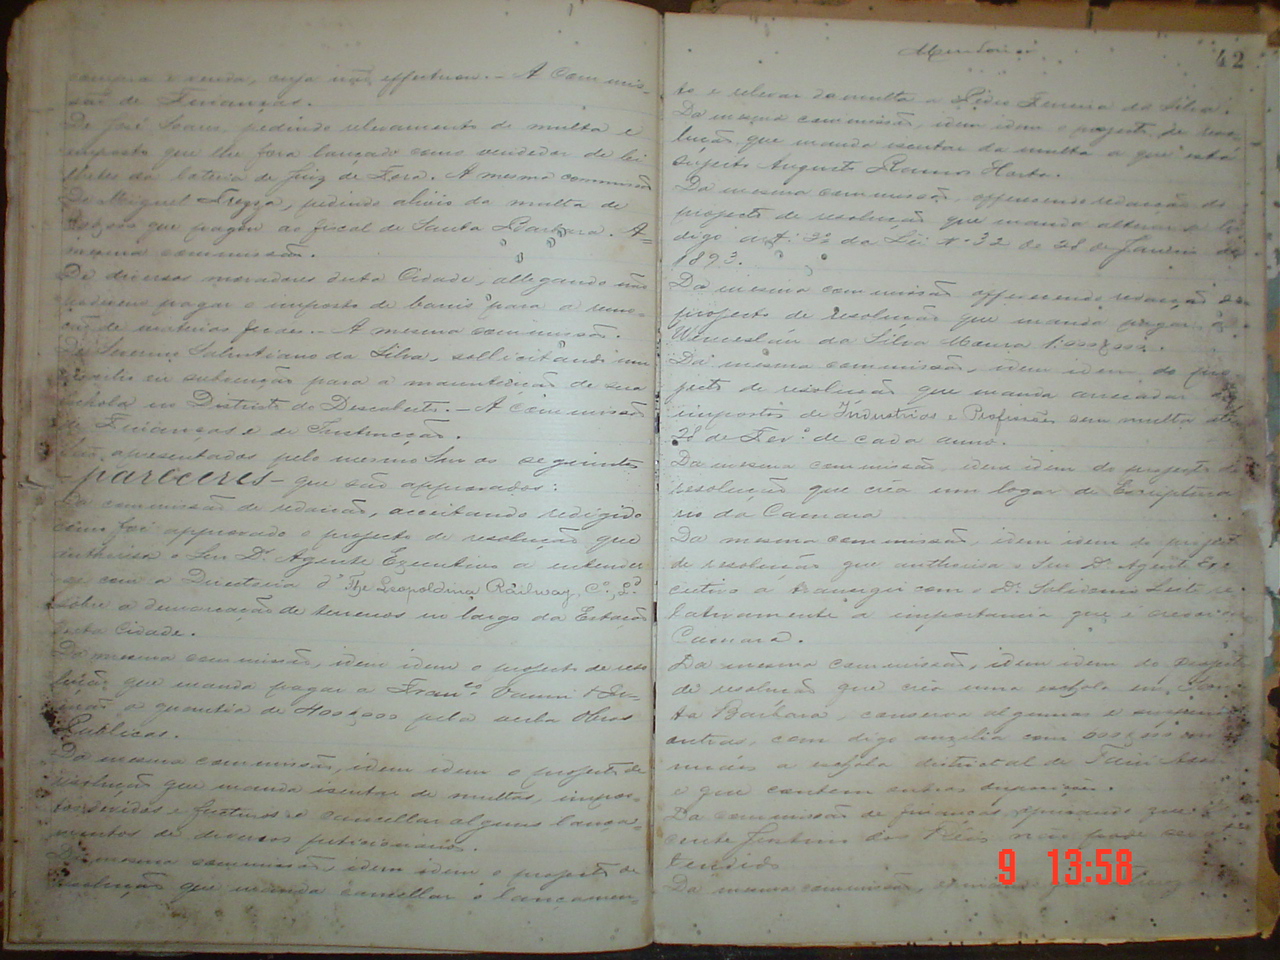 compra e venda, cuja não effectuou. - A Commis-
são de Finanças.
De José Soares, pedindo relevamento de multa e
imposto que lhe fora lançado como vendedor de bi
lhetes da loteria de Juiz de Fora. A mesma commissão
De Miguel, pedindo alivio da multa de
que pagou ao fiscal de Santa Barbara. A
mesma commissão.
De diversos moradores desta Cidade, allegando não
poderem pagar o imposto de barris para a remo-
ção de materias fecaes. - A mesma commissão.
De Severino Salustiano da Silva, sollicitando um
auxilio ou subvenção para a manutenção de sua
eschola no Districto do Descoberto. - A Commissão
de Finanças e de Instrucção.
São apresentados pelo mesmo Snr os seguintes
- pareceres - que são approvados:
Da commissão de redacção, acceitando redigido
como foi approvado o projecto de resolução que
authorisa o Snr Dr. Agente Executivo a entender
se com a Directoria d' The Leopoldina Railway, Cº, Ld
sobre a demarcação de terrenos no largo da Estação
desta Cidade.
Da mesma commissão, idem idem o projecto de reso
lução que manda pagar a Franco Vanni & Ir-
mão a quantia de 400$000 pela verba Obras
Publicas.
Da mesma commissão, idem idem o projecto de
resolução que manda isentar de multas, impos-
tos devidos e futuros e cancellar alguns lança-
mentos de diversos peticionarios.
Da mesma commissão, idem idem o projecto de
resolução que manda cancellar o lançamen-
42
to e relevar da multa a Pedro Ferreira da Silva.
Da mesma commissão, idem idem o projecto de reso
lução que manda isentar da multa a que está
sujeito Augusto Ramos Horta.
Da mesma commissão, offerecendo redacção do
projecto de resolução que manda alterar o
digo o Art. 2º da Lei nº 32 de 28 de Janeiro de
1893.
Da mesma commissão offerecendo redacção do
projecto de resolução que manda pagar a
Wenceslau da Silva Moura
Da mesma commissão, idem idem do pro
jecto de resolução que manda arrecadar os
impostos de Industrias e Profissões sem multa até
28 de Fevº de cada anno.
Da mesma commissão, idem idem do projecto de
resolução que crêa um logar de Escriptura
rio da Camara
Da mesma commissão, idem idem do projecto
de resolução que authorisa o Snr Dr. Agente Exe
cutivo a transigir com o Dr. re
lativamente a importancia que é a
Camara.
Da mesma commissão, idem idem do projecto
de resolução que crêa uma eschola em San
ta Barbara, conserva algumas e supprime
outras, com digo auxilia com
a eschola districtal de
e que contem outras disposições.
Da commissão de finanças, opinando que
dos Reis não pode ser at
tendido
Da mesma commissão,
9 13:58